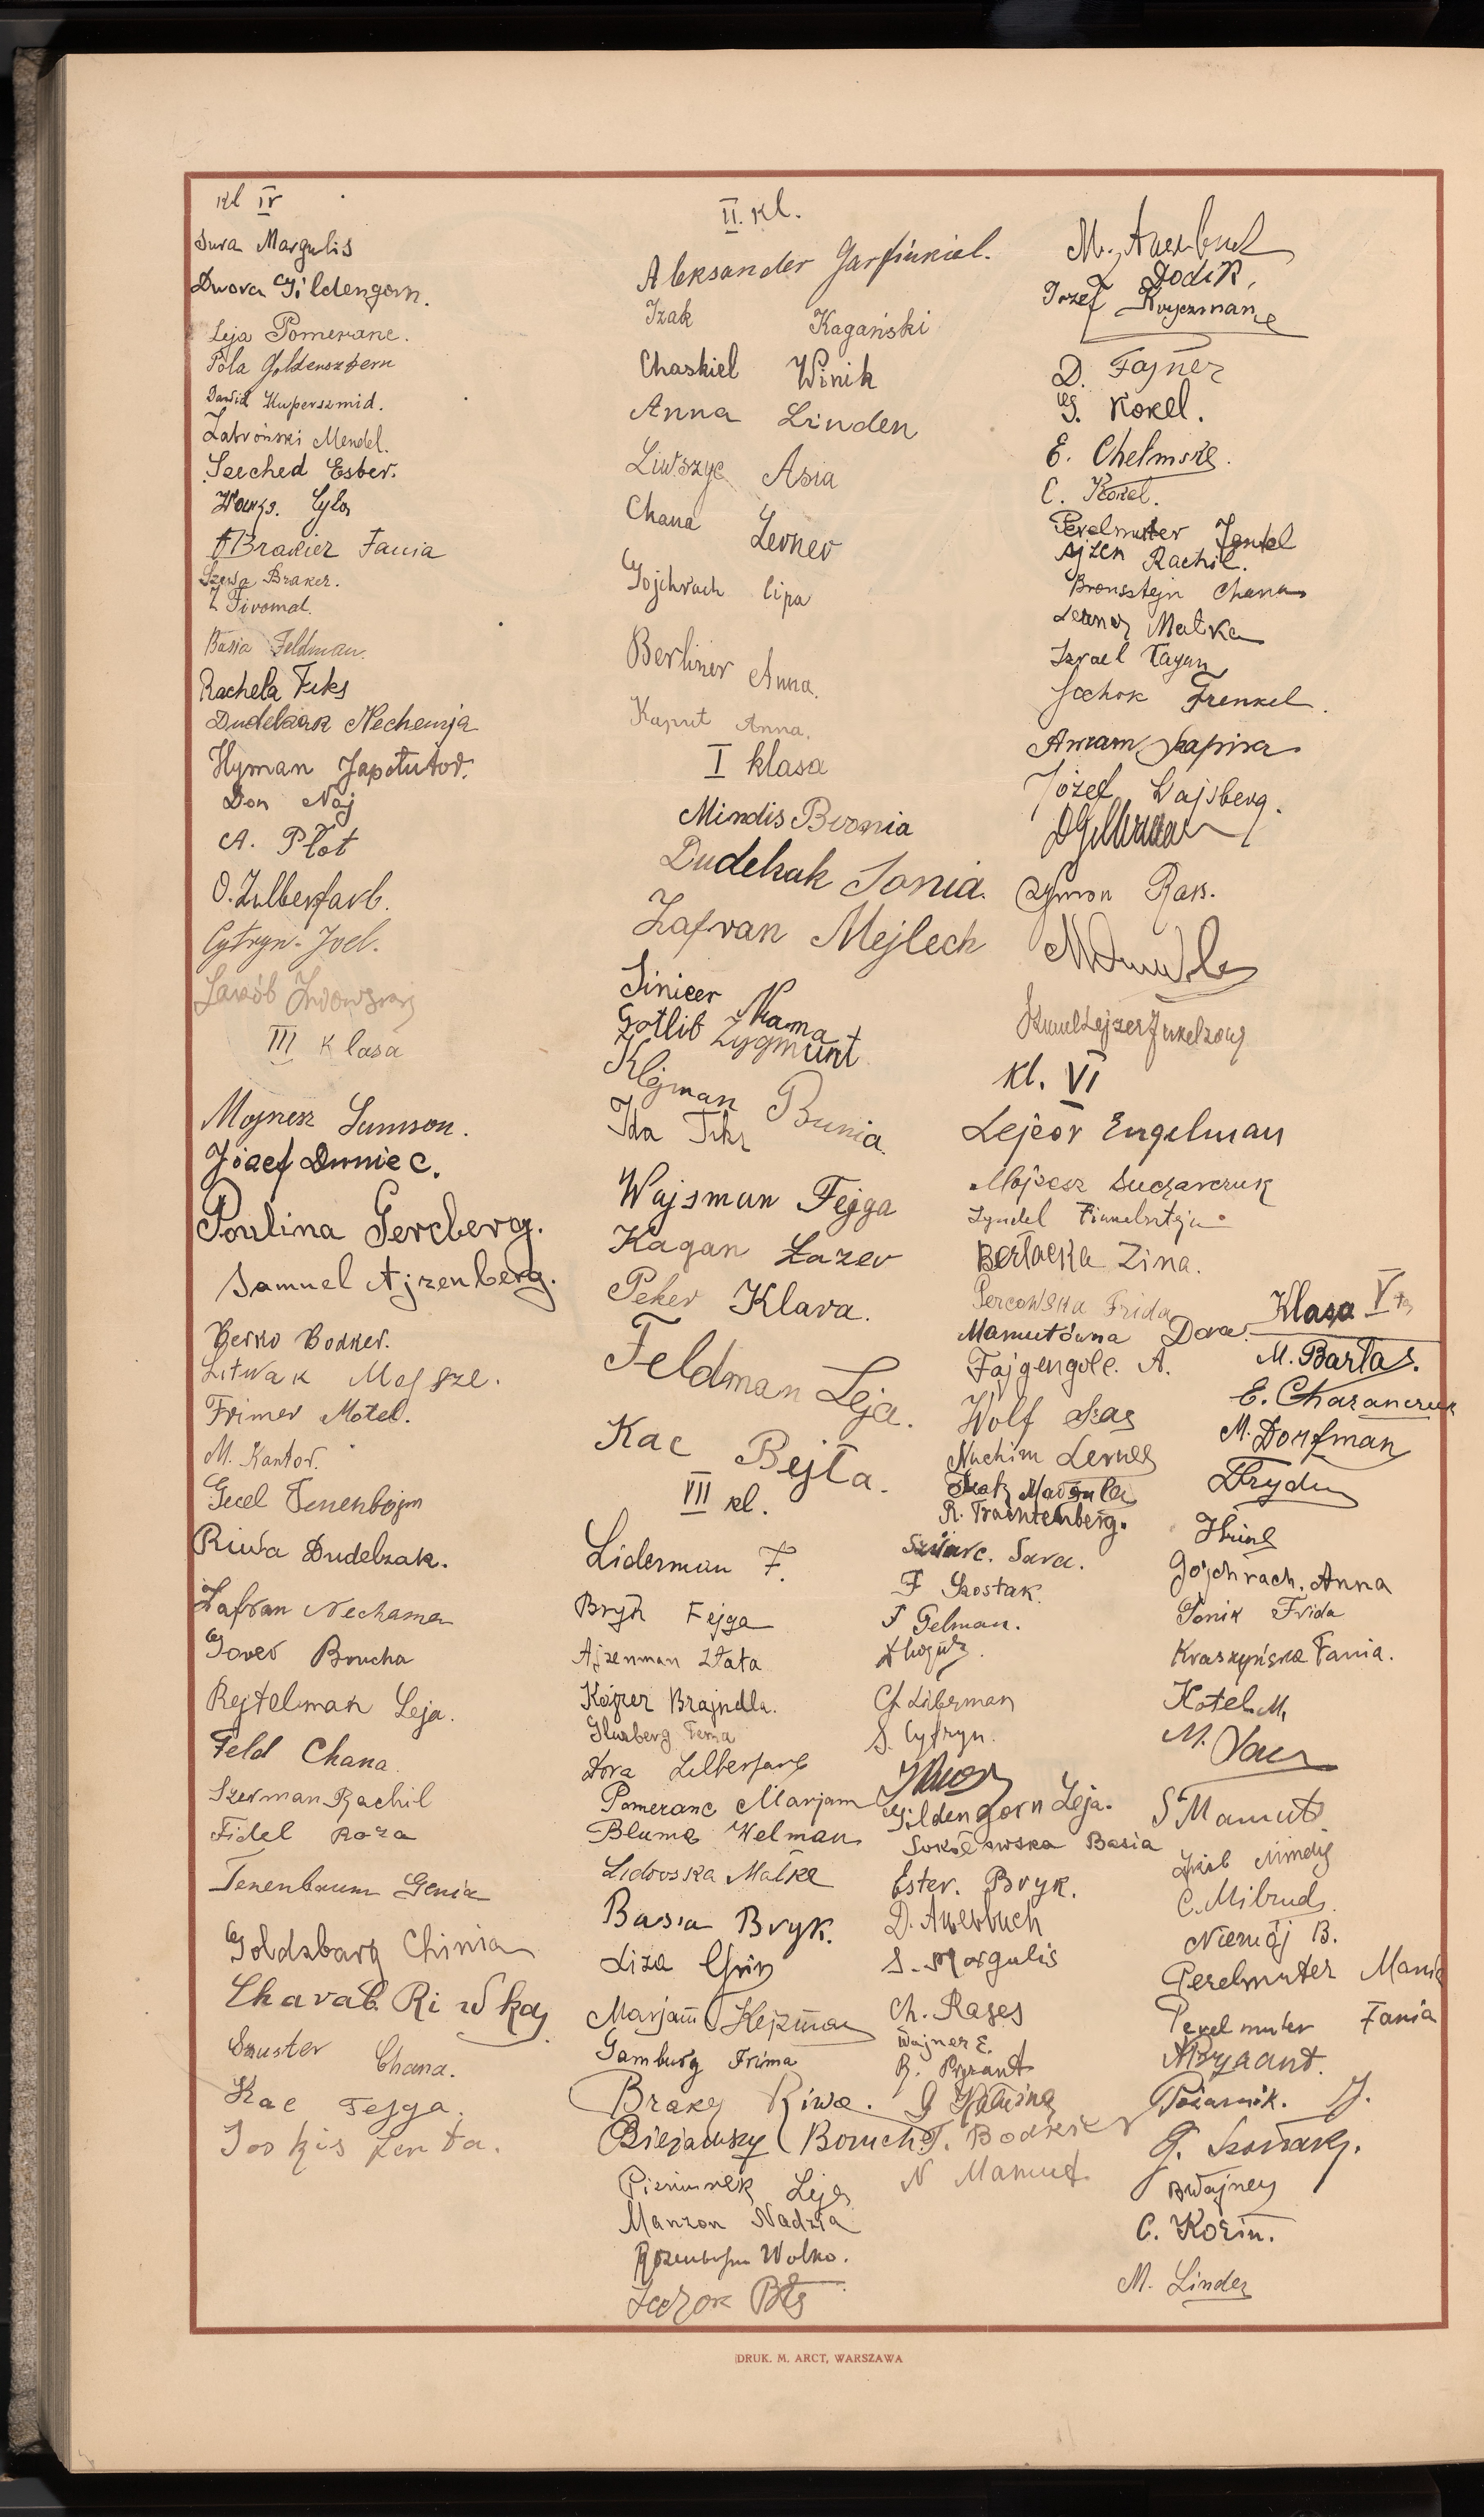 kl IV
Sura Margulis
Dwora Gildengorn.
Leja Pomeranc.
Pola Goldensztern
Dawid Kuperszmid.
Zabroński Mendel.
Szeched Ester.
Cyla
Brakier Fania
Szewa Braker.
Basia Feldman.
Rachela Fuks
Dudelzak Nechemja
Hyman
Don Naj
A. Płot
O. Zilberfarb.
Cytryn Joel.
Jakób
III Klasa
Mojżesz Samson.
Józef Duniec.
Poulina Gercberg.
Samuel Ajzenberg.
Berko Bodker.
Litwak Mojsze.
Frimer Motel.
M. Kantor.
Gecel Tenenbojm
Riwa Dudelzak.
Zafran Nechama
Gower Brucha
Rejtelman Leja.
Feld Chana
Szerman Rachil
Fidel Roza
Tenenbaum Genia
Goldzbarg Chinia
Charab. Riwka
Szuster Chana.
Kac Fejga.
Joskis Jenta.
II. kl.
Aleksander Garfinkiel.
Izak Kagański
Chaskiel Winik
Anna Linden
Liwszyc Asia
Chana Lerner
Gojchrach Lipa
Berliner Anna.
Kaprit Anna.
I klasa
Mindis Bronia
Dudelzak Sonia.
Zafran Mejlech
Sinicer Nıama
Gotlib Zygmunt
Klejman Bunia.
Ida Fuks
Wajsman Fejga
Kagan Łazer
Peker Klara.
Feldman Leja.
Kac Bejła.
VII kl.
Liderman F.
Bryk Fejga
Ajzenman Złata
Kojzer Brajndla.
Gluzberg Fema
Dora Zilberfarb
Pomeranc Marjam
Bluma Welman
Lidowska Małka
Basia Bryk.
Liza Grin
Marjam Klejzman
Gamburg Frima
Braker Riwa.
Boruch.
Leja
Manzon Nadzia
Rozenbojm Wolko.
M. Auerbuch
Dodik,
Józef Kryczman
D. Fajner
G. Kokel.
E. Chelmska.
C. Kokel.
Perelmuter Jentel
Ajzen Rachil.
Bronsztejn Chana
Lerner Matka
Izrael Kagan
Frenkel.
Amram Szapira
Józef Wajsberg.
Szymon Rass.
kl. VI
Lejzor Engelman
Mojżesz Sucharczuk
Zyndel Finkelsztejn.
Berłacka Zina.
Percowska Frida
Mamutówna Dora.
Fajgengolc. A.
Wolf Szas
Nuchim Lerner
R. Trachtenberg.
Szwarc. Sara.
F Szostak.
F Gelman.
Ch Liberman
S. Cytryn.
Gildengorn Leja.
Sokołowska Basia
Ester. Bryk.
D. Auerbuch
S. Margulis
Ch. Rases
Wajner E.
R. Pryzant
F. Bodkier
N Mamut.
Klasa V ta
M. Barłas.
E. Charanczuk
M. Dorfman
Gojchrach. Anna
Frida
Kraszyńska Fania.
Kotel. M.
M.
S Mamut.
C. Milrud.
Niemój B.
Perelmuter Mania
Perelmuter Fania
Pożarnik. J.
B Wajner
C. Kozin.
M. Linder
DRUK. M. ARCT, WARSZAWA